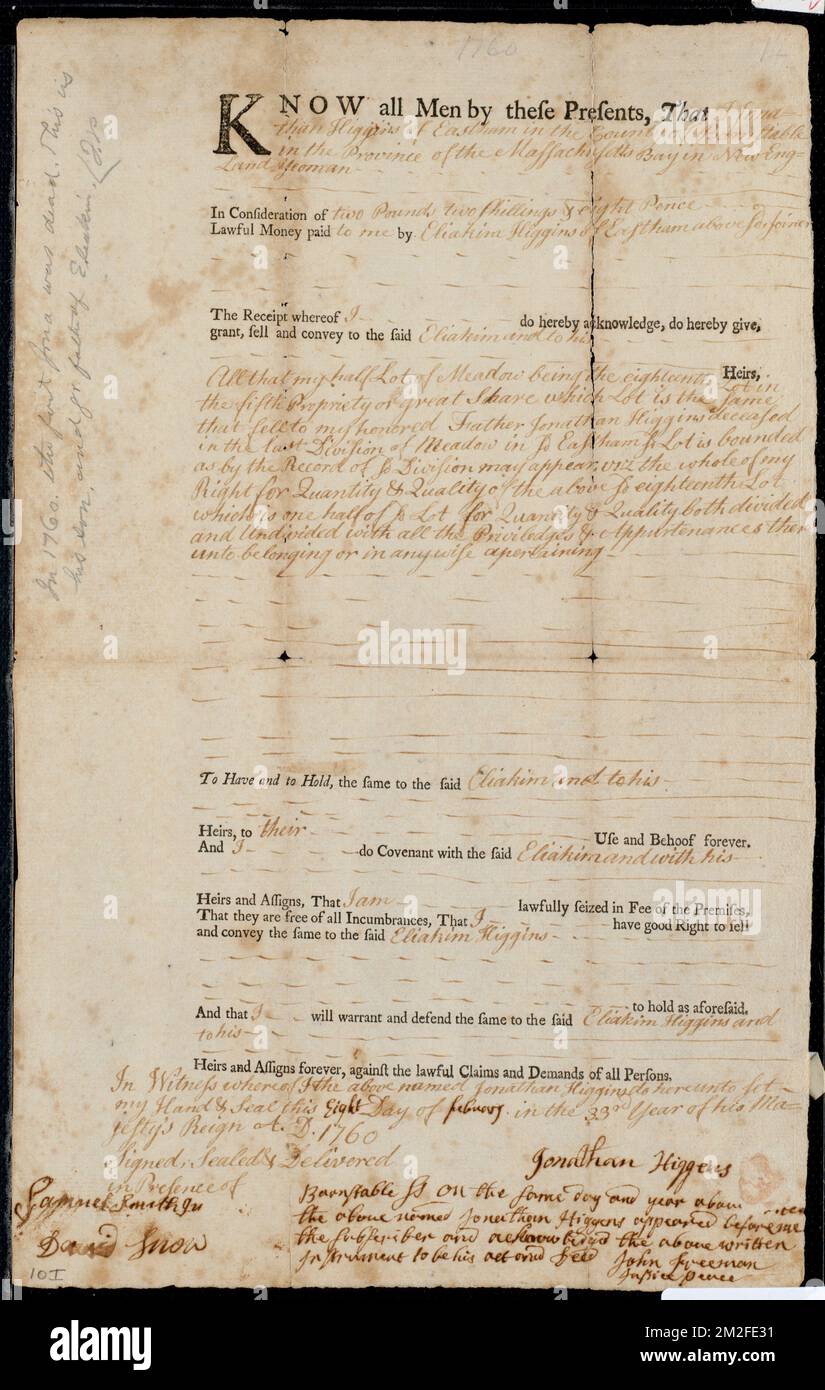 1760
KNOW all Men by theſe Preſents, That I Jona-
than Higgins of Eastham in the County of Barnstable
in the Province of the Massachusetts Bay in New Eng-
Land Yeoman
In Conſideration of two Pounds two ſhillings & eight Pence
Lawful Money paid to me by Eliakim Higgins of Eastham above sd joiner
The Receipt whereof I do hereby acknowledge, do hereby give,
grant, ſell and convey to the ſaid Eliakim and to his
Heirs,
All that my half Lot of Meadow being the eighteenth Lot in
the fifth Propriety or great Share which Lot is the same
that fell to my honored Father Jonathan Higgins deceased
in the last Division of Meadow in sd Eastham sd Lot is bounded
as by the Record of sd Division may appear, viz the whole of my
Right for Quantity & Quality of the above sd eighteenth Lot
which is one half of sd Lot for Quantity & Quality both divided
and Undivided with all the Priviledges & Appurtenances ther
unto belonging or in any wise apertaining
To Have and to Hold, the ſame to the ſaid Eliakim and to his
Heirs, to their Uſe and Behoof forever.
And I do Covenant with the ſaid Eliakim and with his
Heirs and Aſſigns, That I am lawfully ſeized in Fee of the Premiſes,
That they are free of all Incumbrances, That I have good Right to ſell
and convey the ſame to the ſaid Eliakim Higgins
to hold as aforeſaid.
And that I will warrant and defend the ſame to the ſaid Eliakim Higgins and
to his
Heirs and Aſſigns forever, againſt the lawful Claims and Demands of all Perſons.
In Witness whereof I the above named Jonathan Higgins do hereunto set
my Hand & Seal this Eight Day of febuary in the 33rd Year of his Ma-
jesty's Reign A. D. 1760
Signed, Sealed & Delivered
in Presence of
Jonathan Higgens
Samuel Smith Jn
David Snow
Barnstable ss on the same day and year above
the above named Jonathan Higgens appeared before me
the subscriber and acknowledged the above written
instrument to be his act and deed John Freeman
Justice peace
10I
In 1760. was dead. This is
his son, and father of Eliakim.
alamy
alamy
alamy
Image ID: 2M2FE31
www.alamy.com